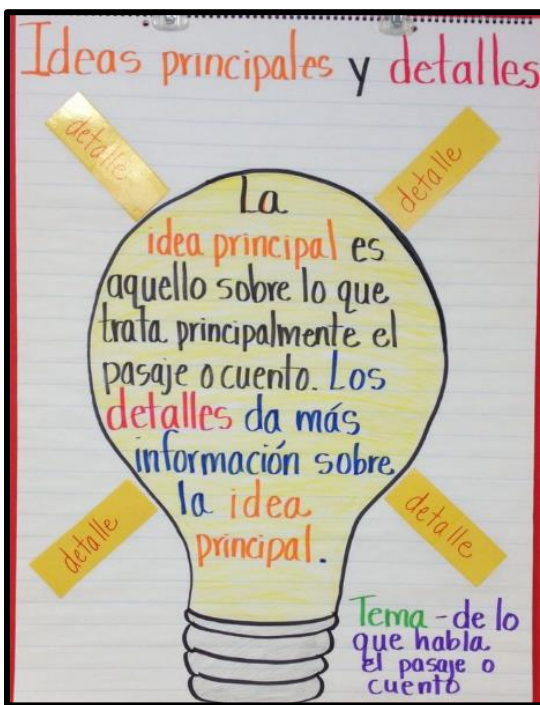 Ideas principales y detalles
detalle
detalle
La
idea principal es
aquello sobre lo que
trata principalmente el
pasaje o cuento. Los
detalles da más
información sobre
la idea
principal.
detalle
detalle
Tema - de lo
que habla
el pasaje o
cuento